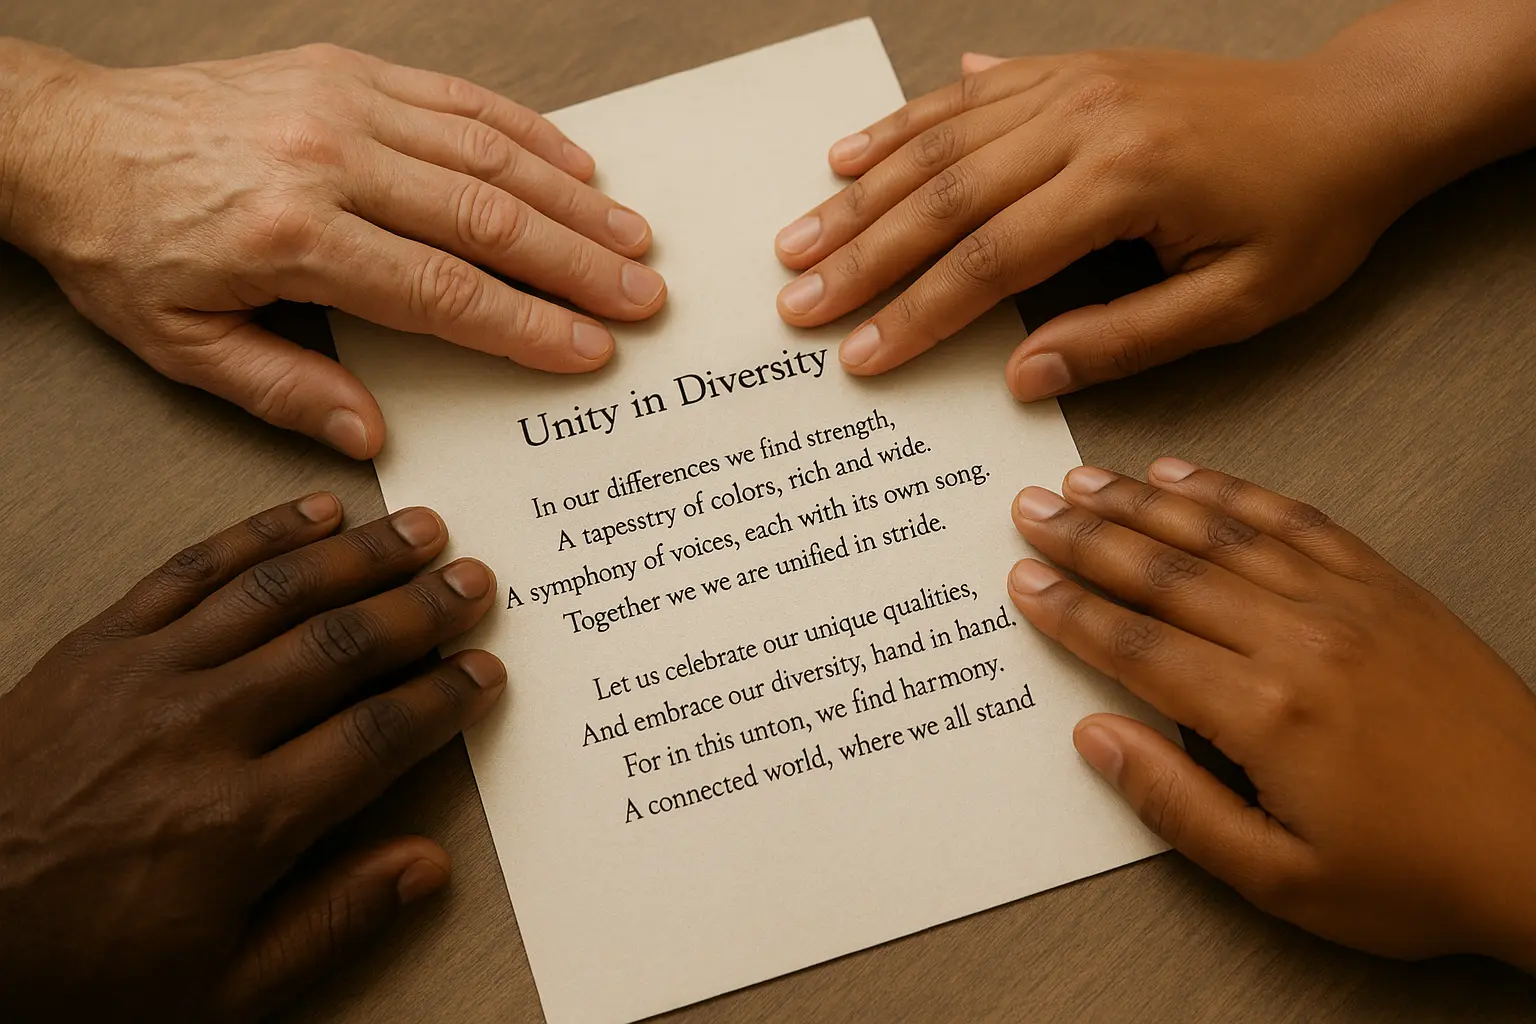 Unity in Diversity
In our differences we find strength,
A tapesstry of colors, rich and wide.
A symphony of voices, each with its own song.
Together we we are unified in stride.
Let us celebrate our unique qualities,
And embrace our diversity, hand in hand.
For in this unton, we find harmony.
A connected world, where we all stand